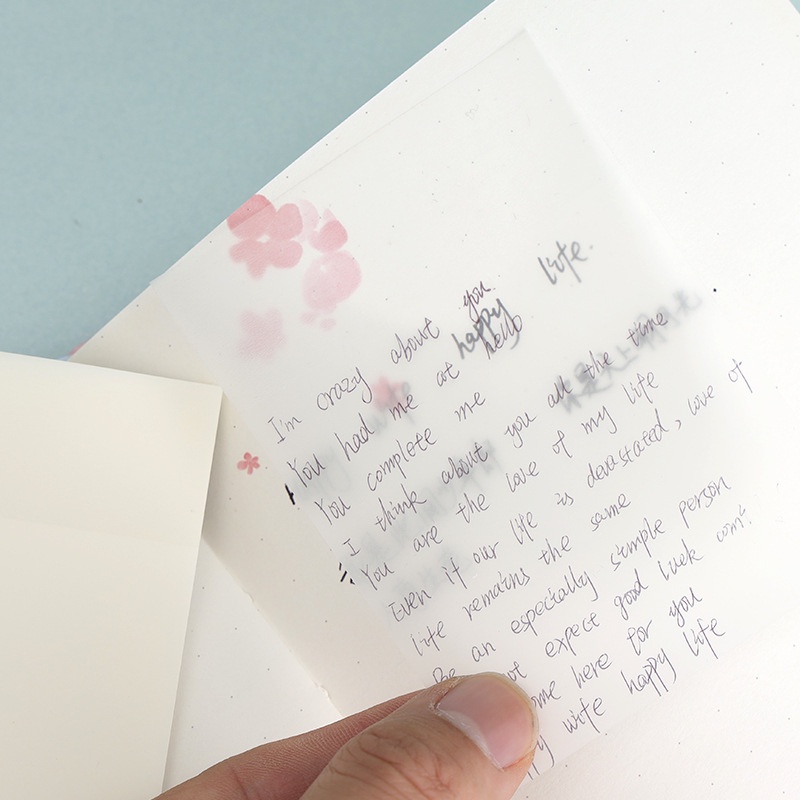 happy life.
I'm crazy about you
You had me at hello
You complete me
I think about you all the time
You are the love of my life
Even if our life is devastated, love of
life remains the same
Be an especially simple person
expect good luck
here for you
wife happy life